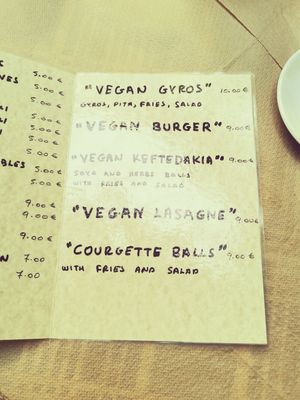 S
VES 5.00 €
5.00 €
5.00 €
5.00 €
5.00 €
5.00 €
BLES 5.00 €
5.00 €
9.00 €
9.00 €
9.00 €
N 7.00
7.00
"VEGAN GYROS" 10.00 €
GYROS, PITA, FRIES, SALAD
"VEGAN BURGER" 9.00€
"VEGAN KEFTEDAKIA" 9.00€
SOYA AND HERBS BALLS
WITH FRIES AND SALAD
"VEGAN LASAGNE" 9.00€
"COURGETTE BALLS" 9.00€
WITH FRIES AND SALAD